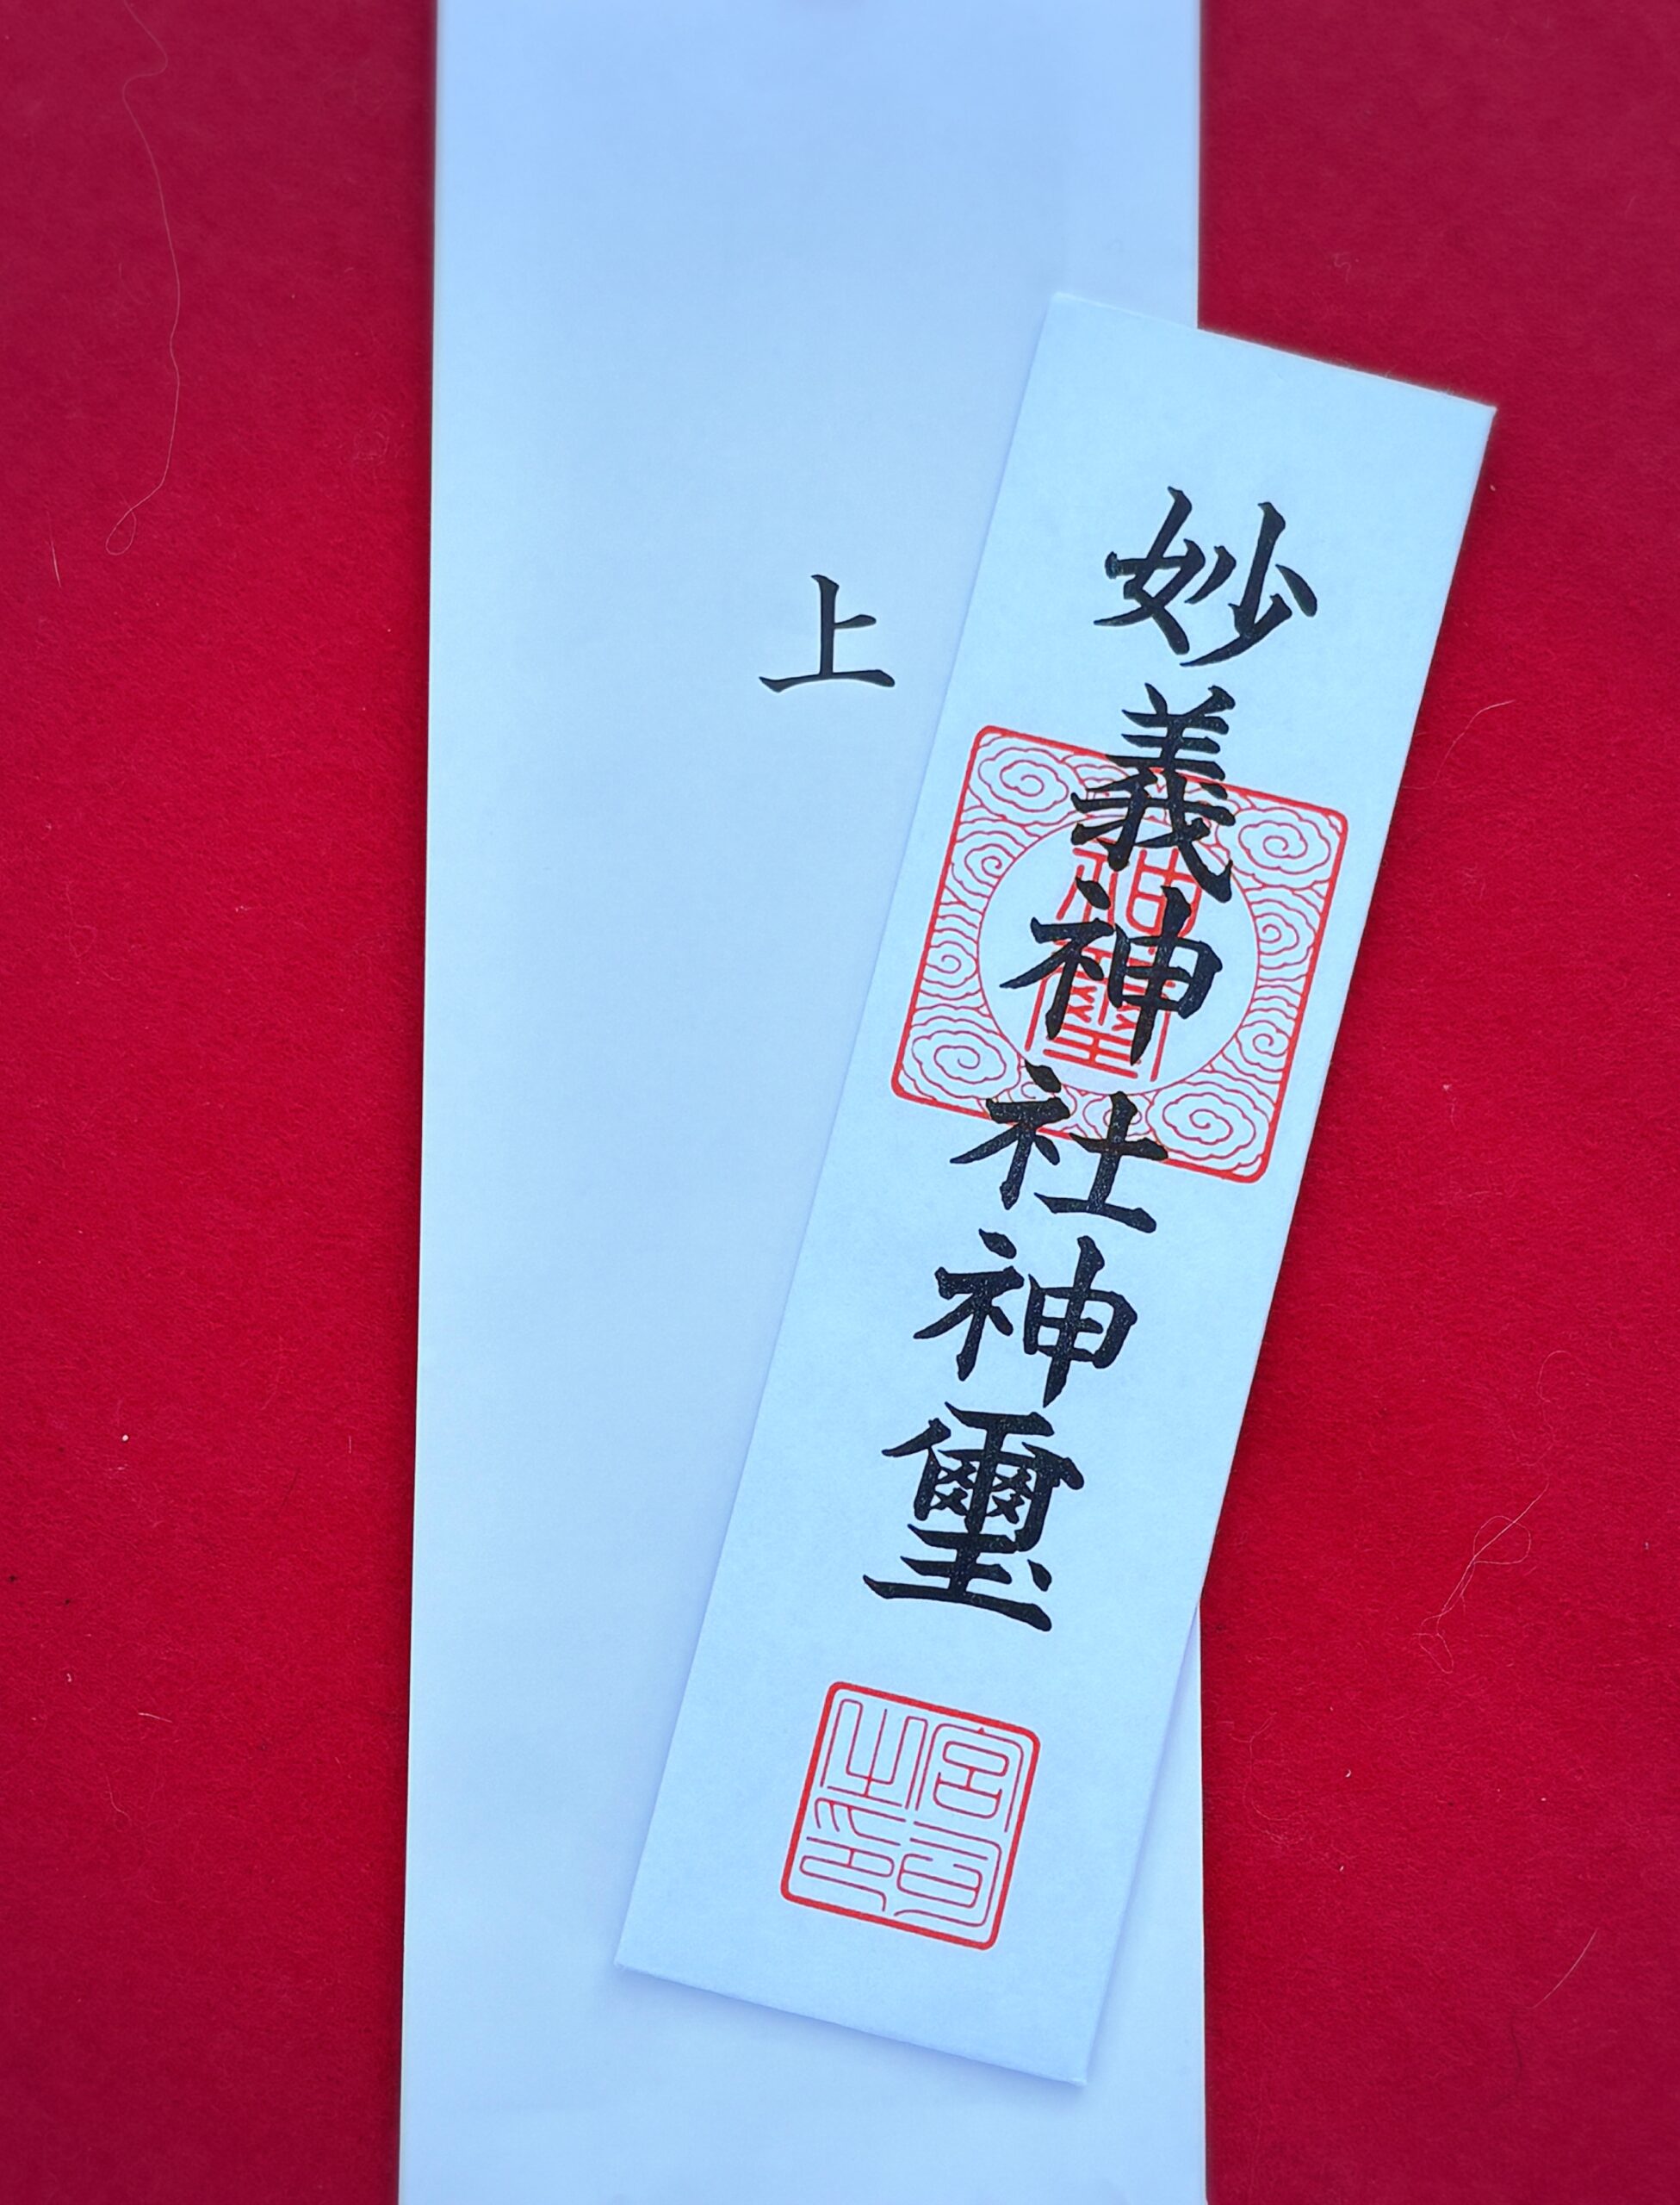 上
妙義神社神璽
神璽
宮司之印